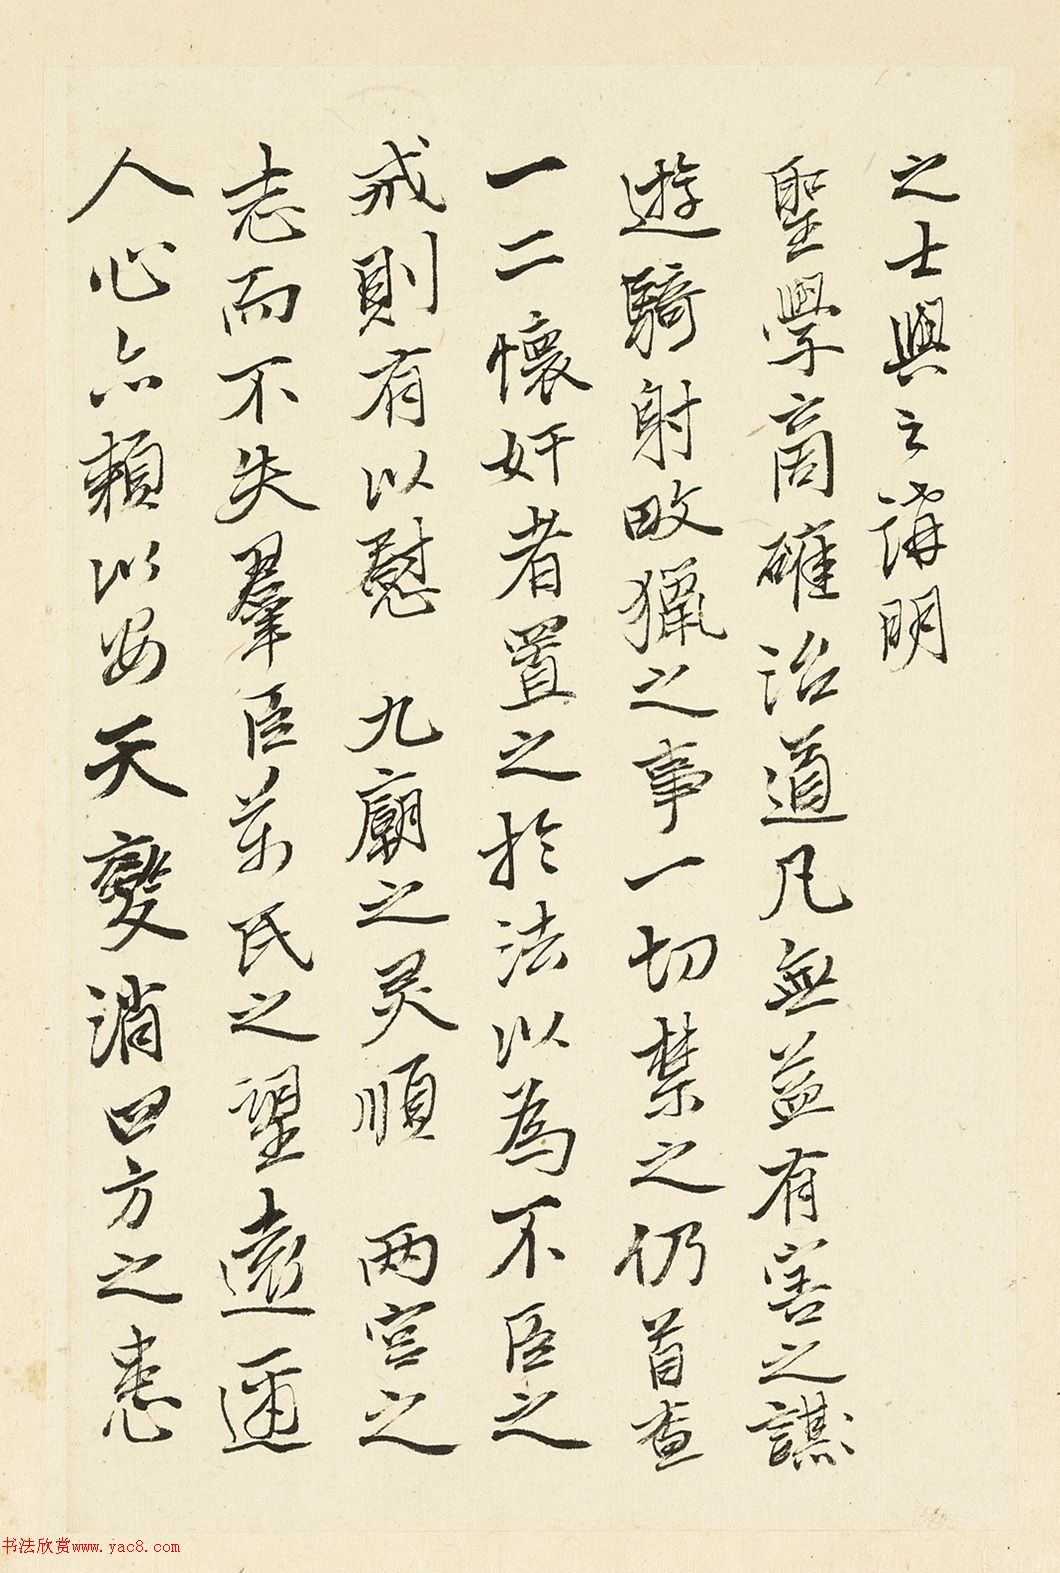 之士與之講明
聖學商確治道凡無益有害之謀
遊騎射畋獵之事一切禁之仍首查
一二懷奸者置之於法以為不臣之
戒則有以慰 九廟之灵順 两宫之
志而不失羣臣萬民之望遠邇
人心亦賴以安天變消四方之患
书法欣赏www.yac8.com